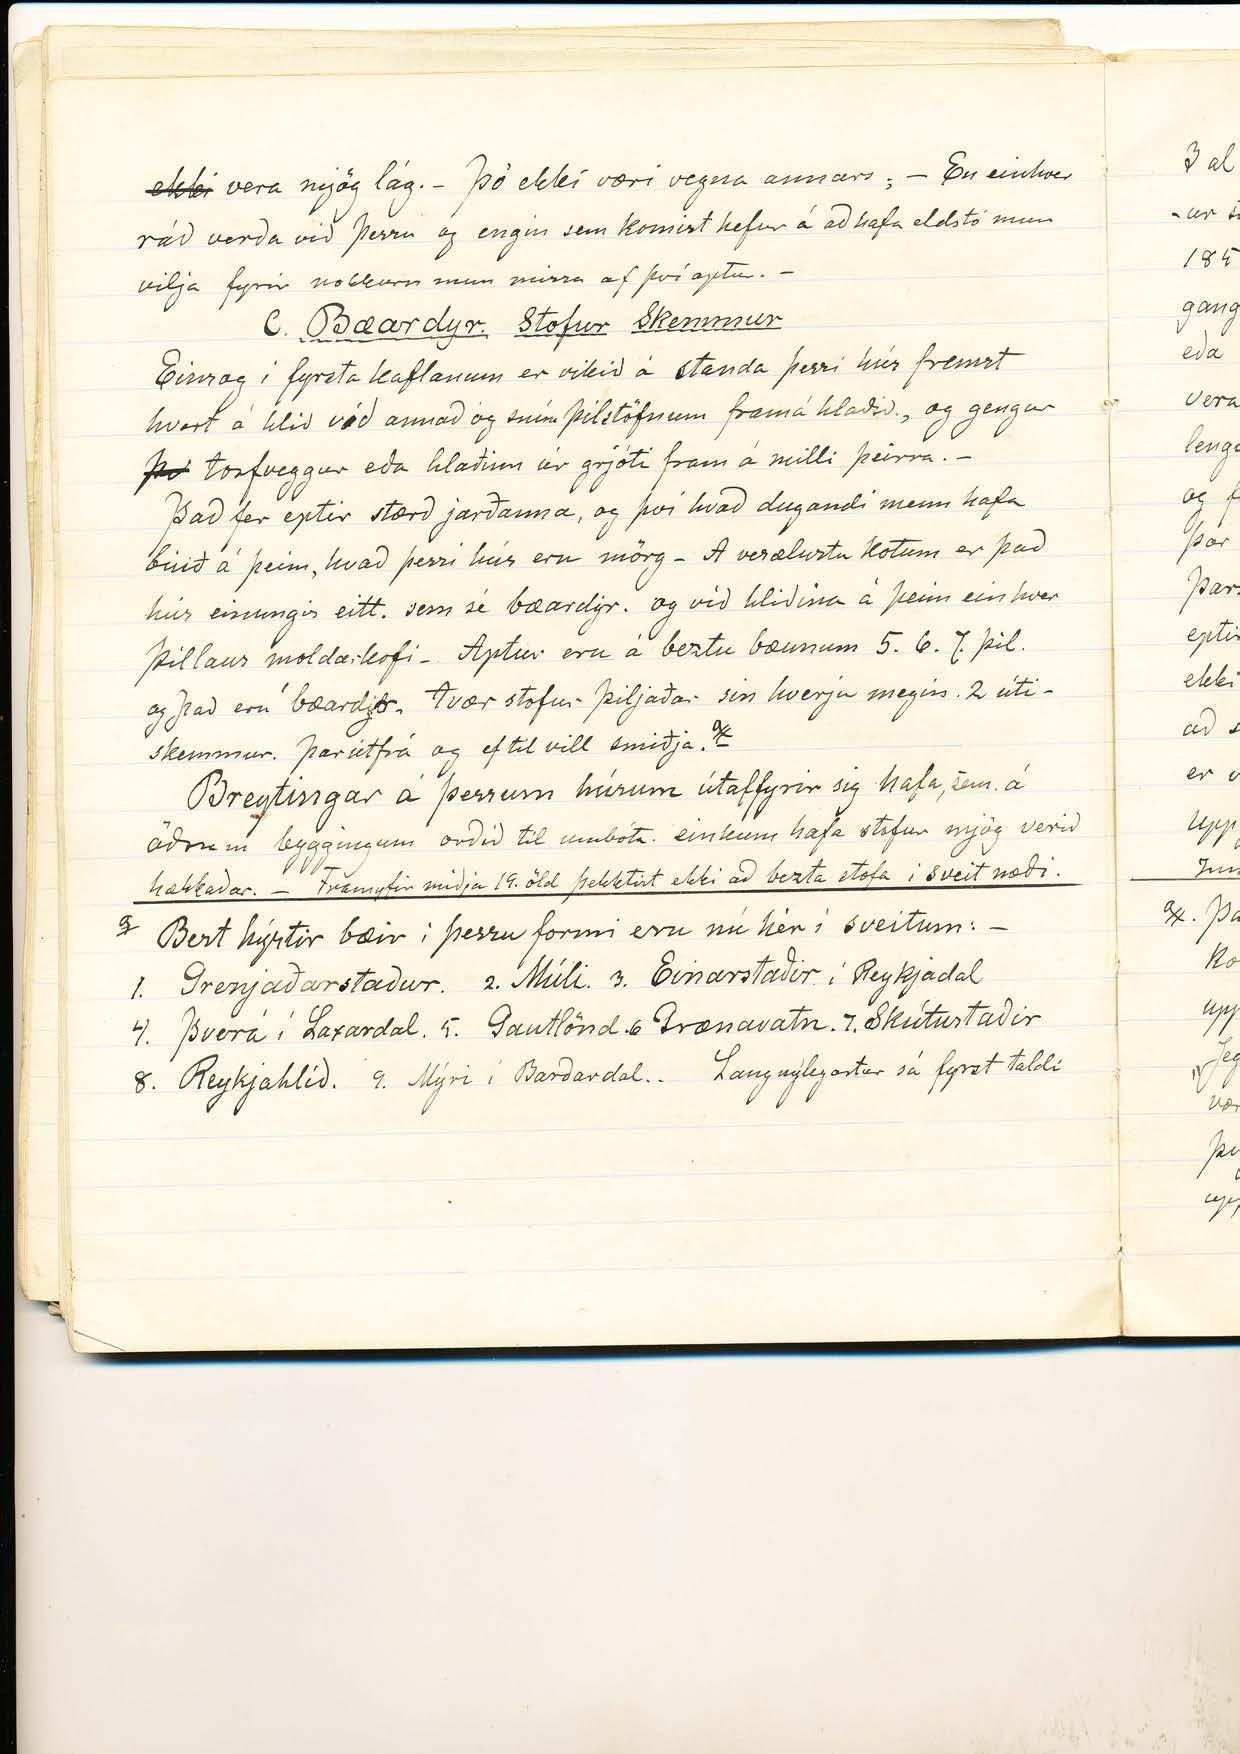 ekki vera mjög lág. - Þó ekki væri vegna annars; - En einhver
ráð verða við þessu og engin sem komist hefur á að hafa eldstó mun
vilja fyrir nokkurn mun missa af því aptur. -
C. Bæardyr. Stofur Skemmur
Einsog i fyrsta kaflanum er vikið á standa þessi hús fremst
hvert á hlið við annað og snúa þilstöfnum framá hlaðið., og gengur
þó torfveggur eða hlaðinn úr grjóti fram á milli þeirra. -
Það fer eptir stærð jarðanna, og því hvað dugandi menn hafa
búið á þeim, hvað þessi hús eru mörg - A vesælustu kotum er það
hús einungis eitt. sem sé bæardyr. og við hliðina á þeim einhver
þillaus moldarkofi - Aptur eru á beztu bæunum 5. 6. 7. þil.
og það eru bæardyr. tvær stofur þiljaðar sin hverju megin. 2 úti-
skemmur. þar útfrá og ef til vill smiðja.
Breytingar á þessum húsum útaffyrir sig hafa, sem á
öðrum byggingum orðið til umbóta. einkum hafa stofur mjög verið
hækkaðar. - Framyfir miðja 19. öld þekktist ekki að bezta stofa i sveit næði.
Best hýstir bæir i þessu formi eru nú hér i sveitum: -
1. Grenjaðarstaður. 2. Múli. 3. Einarstaðir i Reykjadal
4. Þverá i Laxardal. 5. Gautlönd. 6 Grænavatn. 7. Skútustaðir
8. Reykjahlíð. 9. Mýri i Barðardal.. Langnýlegastur sá fyrst taldi
3 al
185
gang
eða
vera
leng
og f
þar
þar
eptir
ekki
að s
er v
upp
Þa
Ko
upp
Jeg
vær
þv
upp